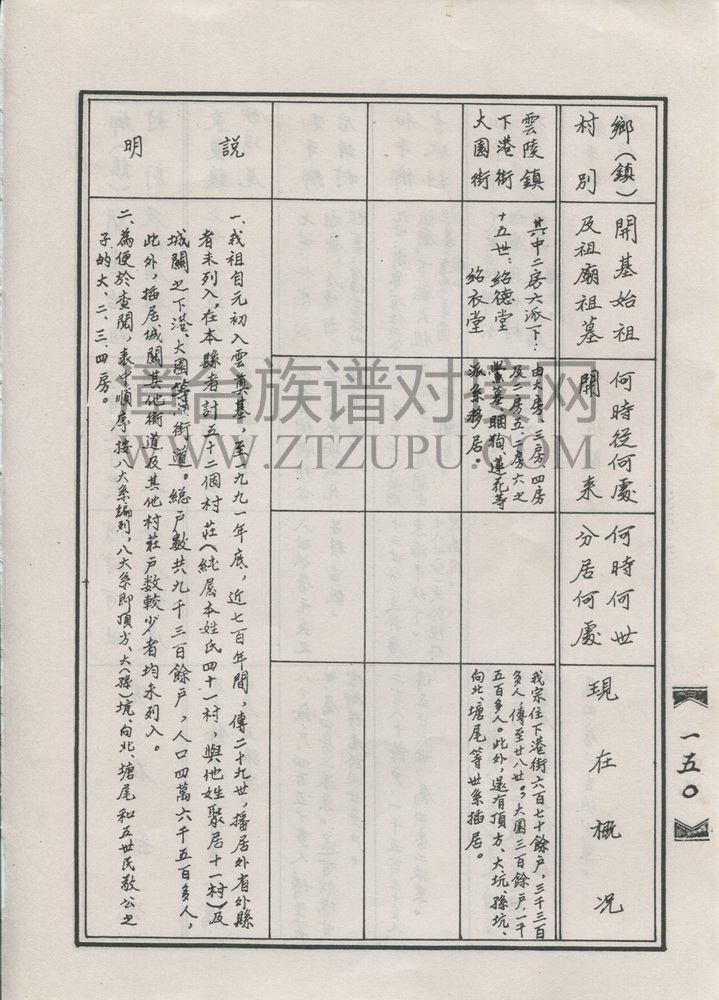 鄉(鎮)
村別
開基始祖
及祖廟祖墓
何時從何處
開來
何時何世
分居何處
現在概況
雲陵鎮
下港街
大園街
其中二房六派下:
十五世:紹德堂
紹衣堂
由大房、三房、四房
及二房五、二房六之
派系移居。
我宗住下港街六百七十餘戶,三千三百
多人,傳至廿八世。大園三百餘戶,一千
五百多人。此外,還有頂方、大坑、孫坑、
向北、塘尾等世系插居。
說明
一、我祖自元初入雲奠基,至一九九一年底,近七百年間,傳二十九世,播居外省外縣
者未列入,在本縣者計五十二個村莊(純屬本姓氏四十一村,與他姓聚居十一村)及
城關之下港、大園等街道。總戶數共九千三百餘戶,人口四萬六千五百多人,
此外,插居城關其他街道及其他村莊戶數較少者均未列入。
二、為便於查閱,表中順序按八大系編列,八大系即頂方、大(孫)坑、向北、塘尾和五世民敬公之
子的大、二、三、四房。
一五〇
漳台族谱对接网
WWW.ZTZUPU.COM